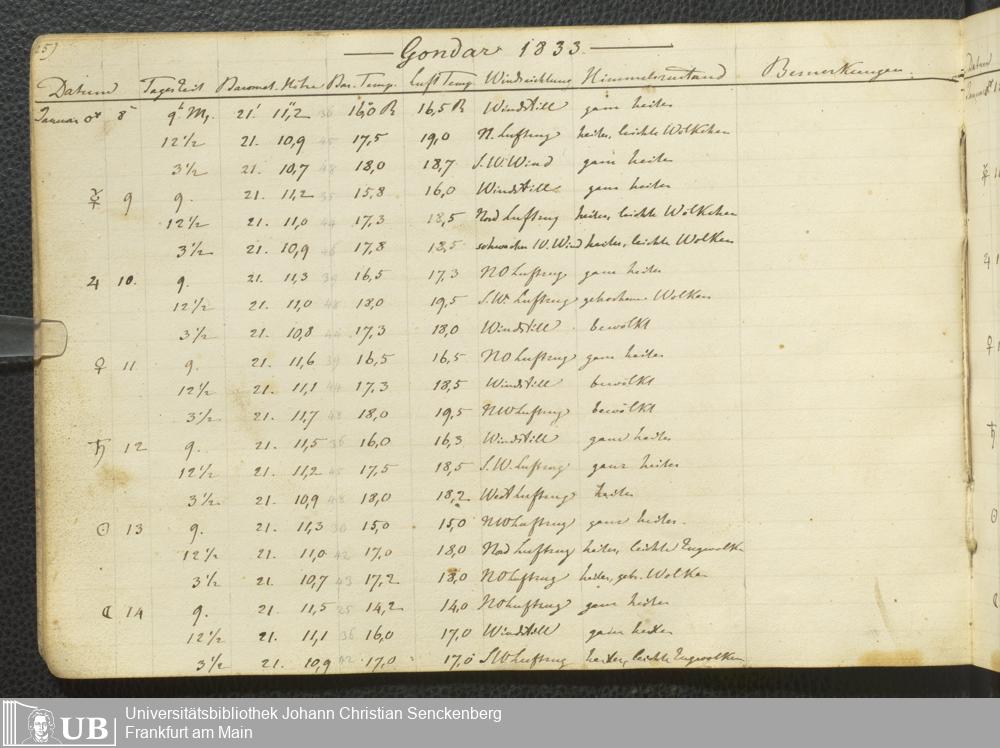 25)
Gondar 1833.
Datum Tageszeit Baromet. Höhe Bar. Temp. Luft Temp. Windrichtung Himmelszustand Bemerkungen.
Januar ♂ 8 9h M. 21' 11,"2 36 16,0 R 16,5 R Windstill ganz heiter
12½ 21. 10,9 45 17,5 19,0 N. Luftzug heiter, leichte Wölkchen
3½ 21. 10,7 48 18,0 18,7 S.W. Wind ganz heiter
☿ 9 9. 21. 11,2 35 15,8 16,0 Windstill ganz heiter
12½ 21. 11,0 44 17,3 18,5 Nord Luftzug heiter, leichte Wölkchen
3½ 21. 10,9 46 17,8 18,5 schwacher W. Wind heiter, leichte Wolken
♃ 10. 9. 21. 11,3 39 16,5 17,3 NO Luftzug ganz heiter
12½ 21. 11,0 48 18,0 19,5 S.W. Luftzug gebrochene Wolken
3½ 21. 10,8 44 17,3 18,0 Windstill bewölkt
♀ 11 9. 21. 11,6 39 16,5 16,5 NO Luftzug ganz heiter
12½ 21. 11,1 44 17,3 18,5 Windstill bewölkt
3½ 21. 11,7 48 18,0 19,5 NW Luftzug bewölkt
♄ 12 9. 21. 11,5 36 16,0 16,3 Windstill ganz heiter
12½ 21. 11,2 45 17,5 18,5 S.W. Luftzug ganz heiter
3½ 21. 10,9 48 18,0 18,2 West Luftzug heiter
☉ 13 9. 21. 11,3 30 15,0 15,0 NW Luftzug ganz heiter.
12½ 21. 11,0 42 17,0 18,0 Nord Luftzug heiter, leichte Zugwolke
3½ 21. 10,7 43 17,2 18,0 NO Luftzug heiter, gebr. Wolken
☾ 14 9. 21. 11,5 25 14,2 14,0 NO Luftzug ganz heiter
12½ 21. 11,1 36 16,0 17,0 Windstill ganz heiter
3½ 21. 10,9 42 17,0 17,0 SW Luftzug heiter, leichte Zugwolken
UB
Universitätsbibliothek Johann Christian Senckenberg
Frankfurt am Main